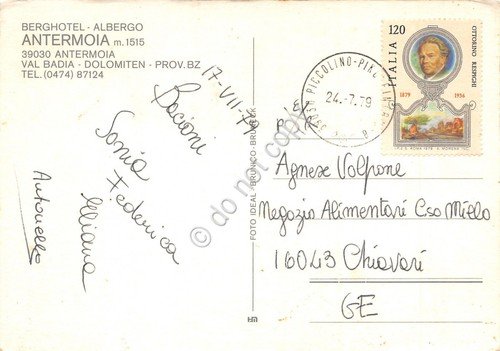 BERGHOTEL - ALBERGO
ANTERMOIA m. 1515
39030 ANTERMOIA
VAL BADIA - DOLOMITEN - PROV. BZ
TEL. (0474) 87124
17-VII-79
Bacioni
Sonia
Federica
Liliana
Antonello
FOTO IDEAL - BRUNICO-BRUNECK
do not copy
PICCOLINO
24.-7.79
120
ITALIA
OTTORINO RESPIGHI
1879
1936
Agnese Volpone
Negozio Alimentari Cso Millo
16043 Chiavari
GE